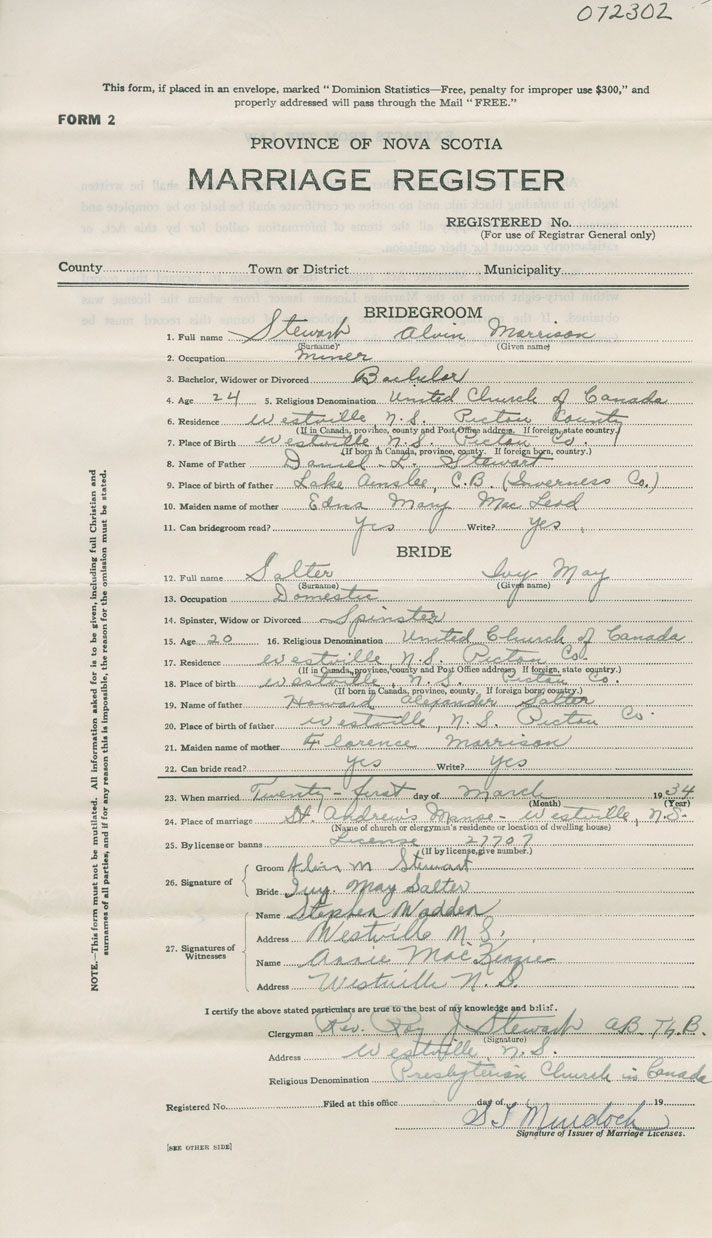 072302
This form, if placed in an envelope, marked "Dominion Statistics—Free, penalty for improper use $300," and
properly addressed will pass through the Mail "FREE."
FORM 2
PROVINCE OF NOVA SCOTIA
MARRIAGE REGISTER
REGISTERED No.
(For use of Registrar General only)
County Town or District Municipality
BRIDEGROOM
1. Full name Stewart Alvin Morrison
(Surname) (Given name)
2. Occupation miner
3. Bachelor, Widower or Divorced Bachelor
4. Age 24 5. Religious Denomination United Church of Canada
6. Residence Westville N.S. Pictou County
(If in Canada, province, county and Post Office address. If foreign, state country.)
7. Place of Birth Westville N.S. Pictou Co.
(If born in Canada, province, county. If foreign born, country.)
8. Name of Father Daniel L. Stewart
9. Place of birth of father Lake Ainslee, C.B. (Inverness Co.)
10. Maiden name of mother Edna Mary MacLeod
11. Can bridegroom read? Yes Write? Yes
BRIDE
12. Full name Salter Ivy May
(Surname) (Given name)
13. Occupation Domestic
14. Spinster, Widow or Divorced Spinster
15. Age 20 16. Religious Denomination United Church of Canada
17. Residence Westville, N.S. Pictou Co.
(If in Canada, province, county and Post Office address. If foreign, state country.)
18. Place of birth Westville, N.S. Pictou Co.
(If born in Canada, province, county. If foreign born, country.)
19. Name of father Howard Alexander Salter
20. Place of birth of father Westville, N.S. Pictou Co.
21. Maiden name of mother Florence Morrison
22. Can bride read? Yes Write? Yes
23. When married Twenty-first day of March 1934
(Month) (Year)
24. Place of marriage St. Andrew's Manse - Westville, N.S.
(Name of church or clergyman's residence or location of dwelling house)
25. By license or banns License 27707
(If by license, give number.)
26. Signature of
Groom Alvin M Stewart
Bride Ivy May Salter
27. Signatures of Witnesses
Name Stephen Wadden
Address Westville N.S.
Name Annie MacKenzie
Address Westville N.S.
I certify the above stated particulars are true to the best of my knowledge and belief.
Clergyman Rev. Roy J. Stewart AB. Th.B.
(Signature)
Address Westville, N.S.
Religious Denomination Presbyterian Church in Canada
Registered No. Filed at this office day of 19
S T Murdoch
Signature of Issuer of Marriage Licenses.
[SEE OTHER SIDE]
NOTE.—This form must not be mutilated. All information asked for is to be given, including full Christian and
surnames of all parties, and if for any reason this is impossible, the reason for the omission must be stated.